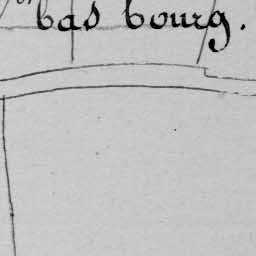 bas bourg.